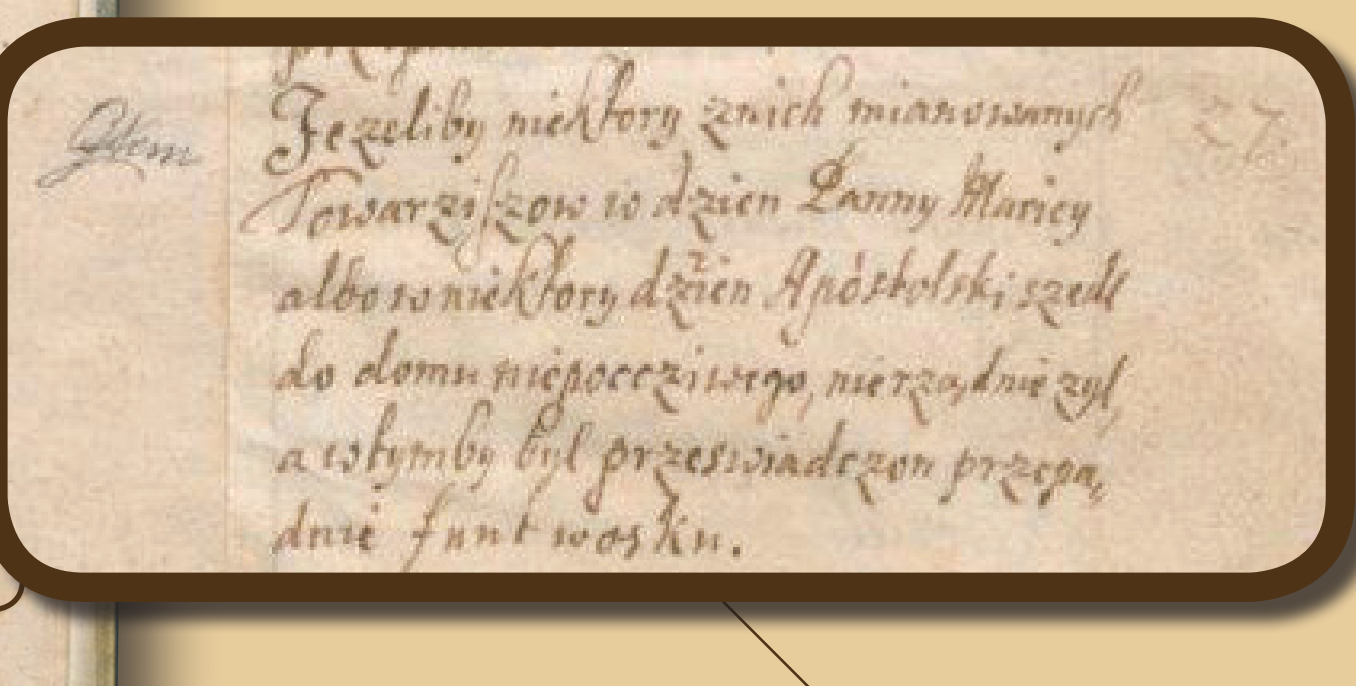 Jezeliby niektory znich mianowanych
Towarziſzow w dzien Panny Mariey
albo w niektory dzien Apostolski szedl
do domu niepoccziwego, nierządnie zyl,
a wtymby byl przeswiadczon przepa,
dnie funt wosku.
27.